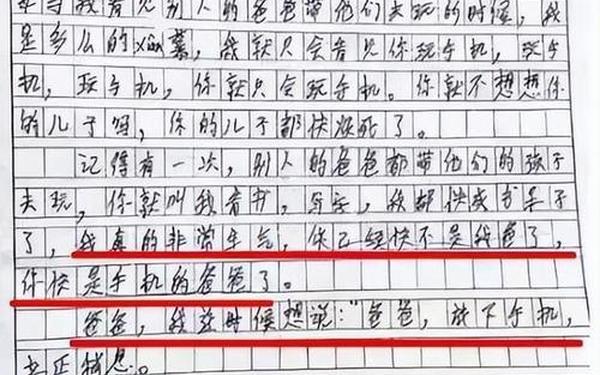 当我看见别人的爸爸带他们去玩的时候，我
是多么的xian慕，我就只会看见你玩手
机，玩手机，你就只会玩手机。你就不想想你
的儿子吗，你的儿子都快烦死了。
记得有一次，别人的爸爸都带他们的孩子
去玩，你就叫我看书，写字，我都快成书呆子
了，我真的非常生气，你已经快不是我爸了，
你快是手机的爸爸了。
爸爸，我这时候想说：“爸爸，放下手机，